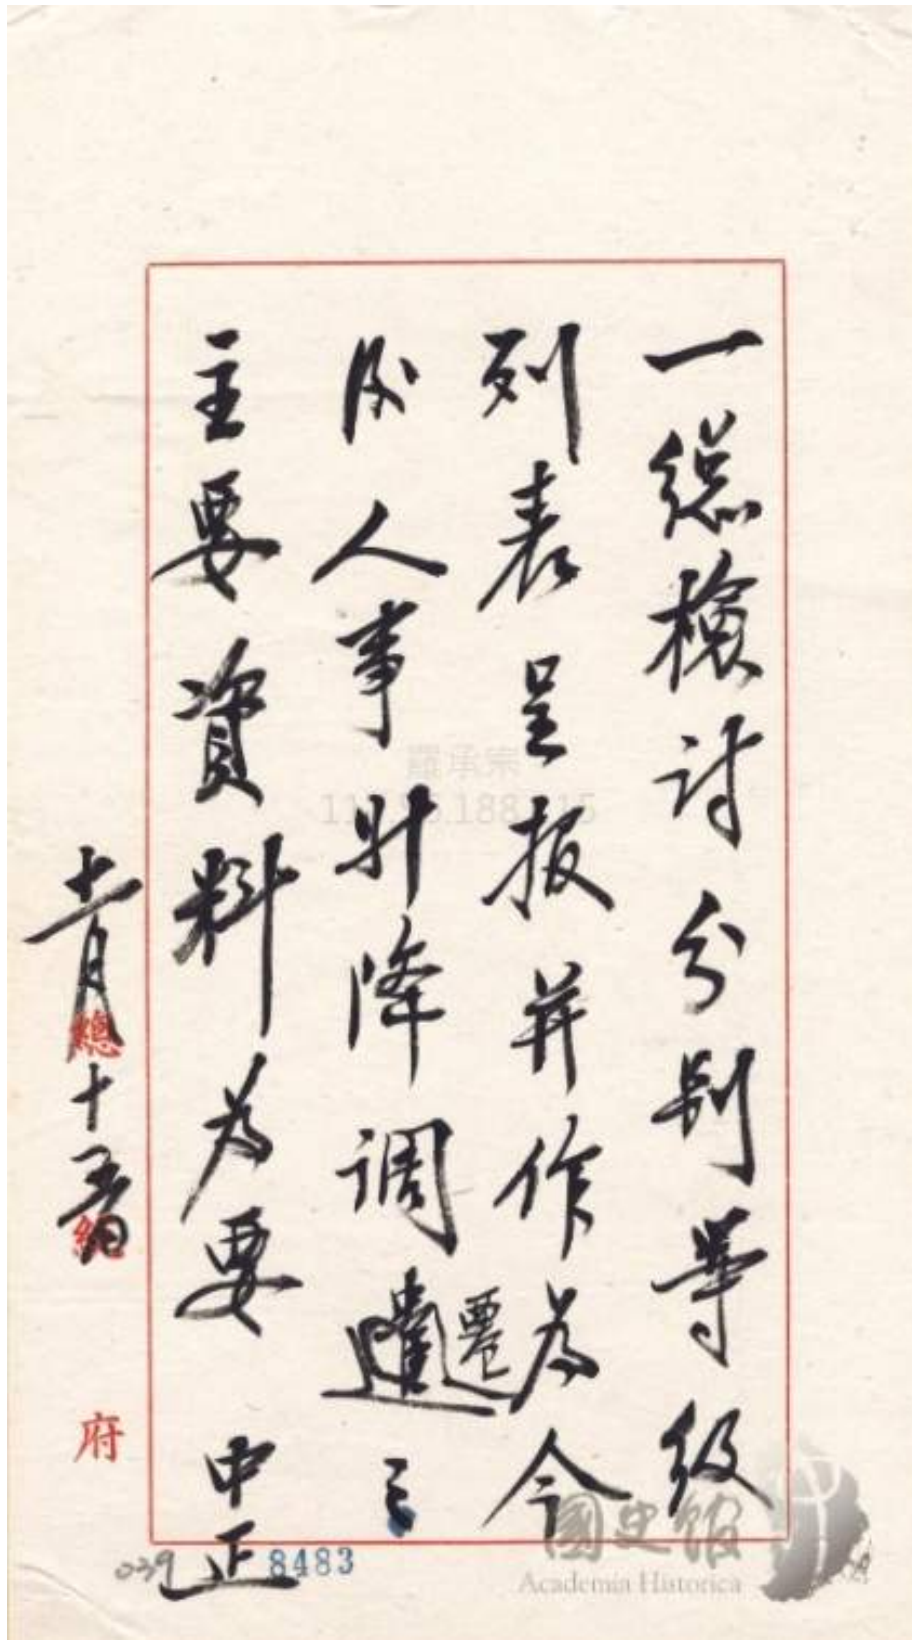 一總檢討分別等級
列表呈报并作為今
後人事升降调遷之
主要資料為要 中正
十一月十五日
總統府
039
8483
羅承宗
國史館
Academia Historica